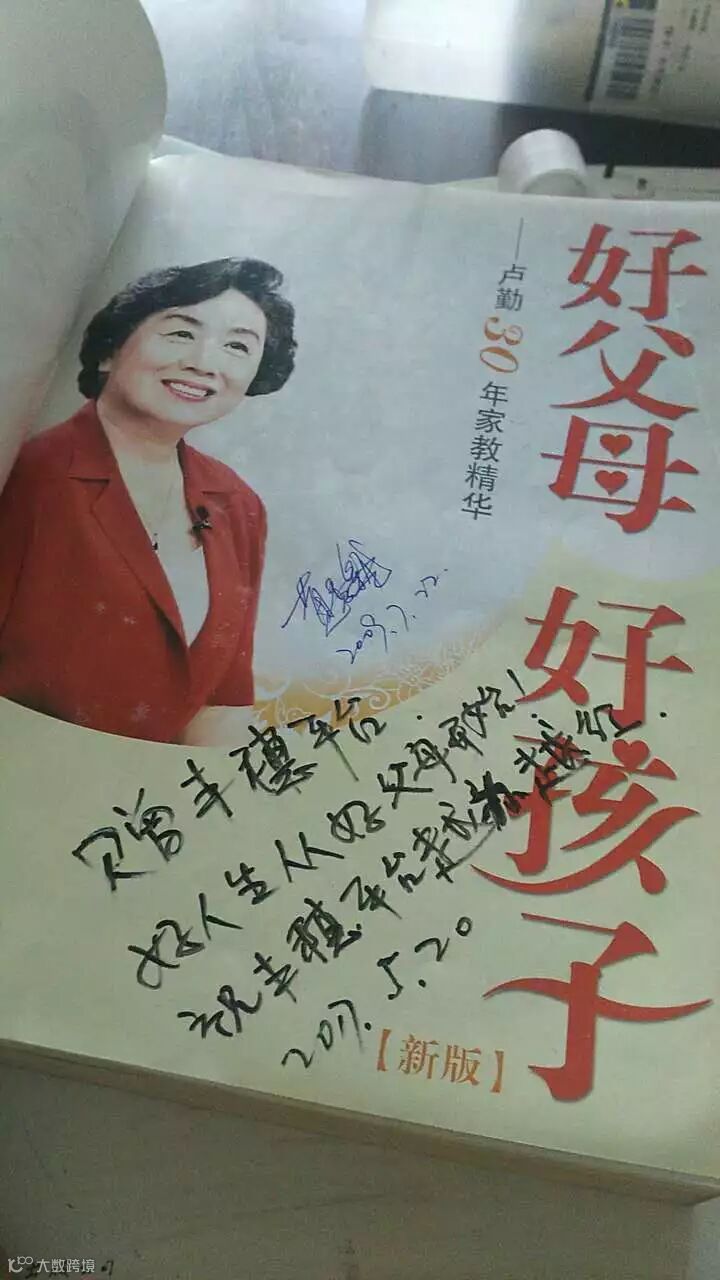 好父母
好孩子
——卢勤30年家教精华
2009.7.22.
赠丰穗平台.
好人生从好父母开始!
祝丰穗平台越办越好.
2017.5.20
【新版】
大数跨境